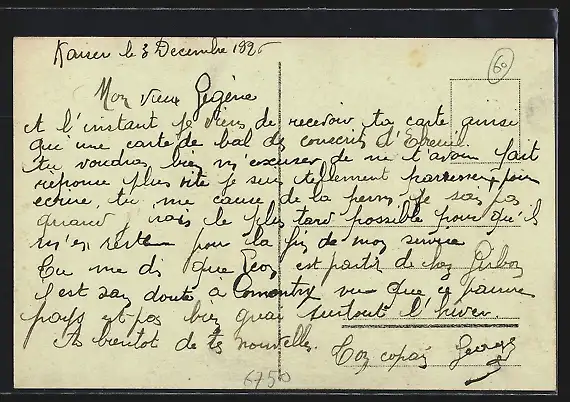 Kaiser le 3 Decembre 1926
60
Mon vieux Gégène
A l'instant je viens de recevoir ta carte ainsi
qu'une carte de bal des conscrits d'Ebreuil.
tu voudras bien m'excuser de ne t'avoir fait
réponse plus vite je suis tellement paresseux pour
ecrire, tu me cause de la perm je sais pas
quand, mais le plus tard possible pour qu'il
m'en reste pour la fin de mon service
Tu me dis que Leon est parti de chez
il est sans doute à Comentry vu que ce pauvre
pays est pas bien guai surtout l'hiver.
A bientot de tes nouvelles. Ton copain Georges
6750